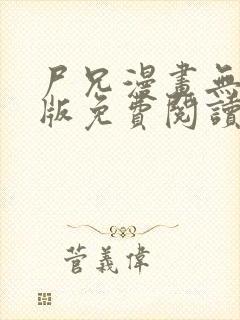 尸兄漫畫無
版免費閱讀
菅義偉